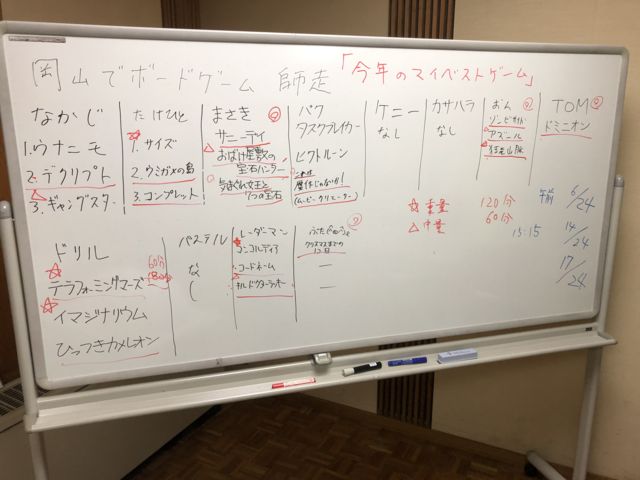 岡山でボードゲーム 師走 「今年のマイベストゲーム」
なかじ
1.ウナニモ
2.デクリプト
3.ギャングスター
たけひと
1.サイズ
2.ウミガメの島
3.コンプレット
まさき
サニーデイ
おばけ屋敷の
宝石ハンター
気まぐれ女王と
7つの宝石
パク
タスクフレイカー
ビクトルーン
これは
傑作じゃないか!
(ムービークリエーター)
ケニー
なし
カサハラ
なし
おん
アズール
TOM
ドミニオン
☆ 重量 120分
△ 中量 60分
15:15
午前 6/24
14/24
17/24
ドリル
テラフォーミングマーズ
イマジナリウム
ひっつきカメレオン
パステル
なし
レーダーマン
コンコルディア
コードネーム
キルドクターラッキー
クリスマスまでの
12日